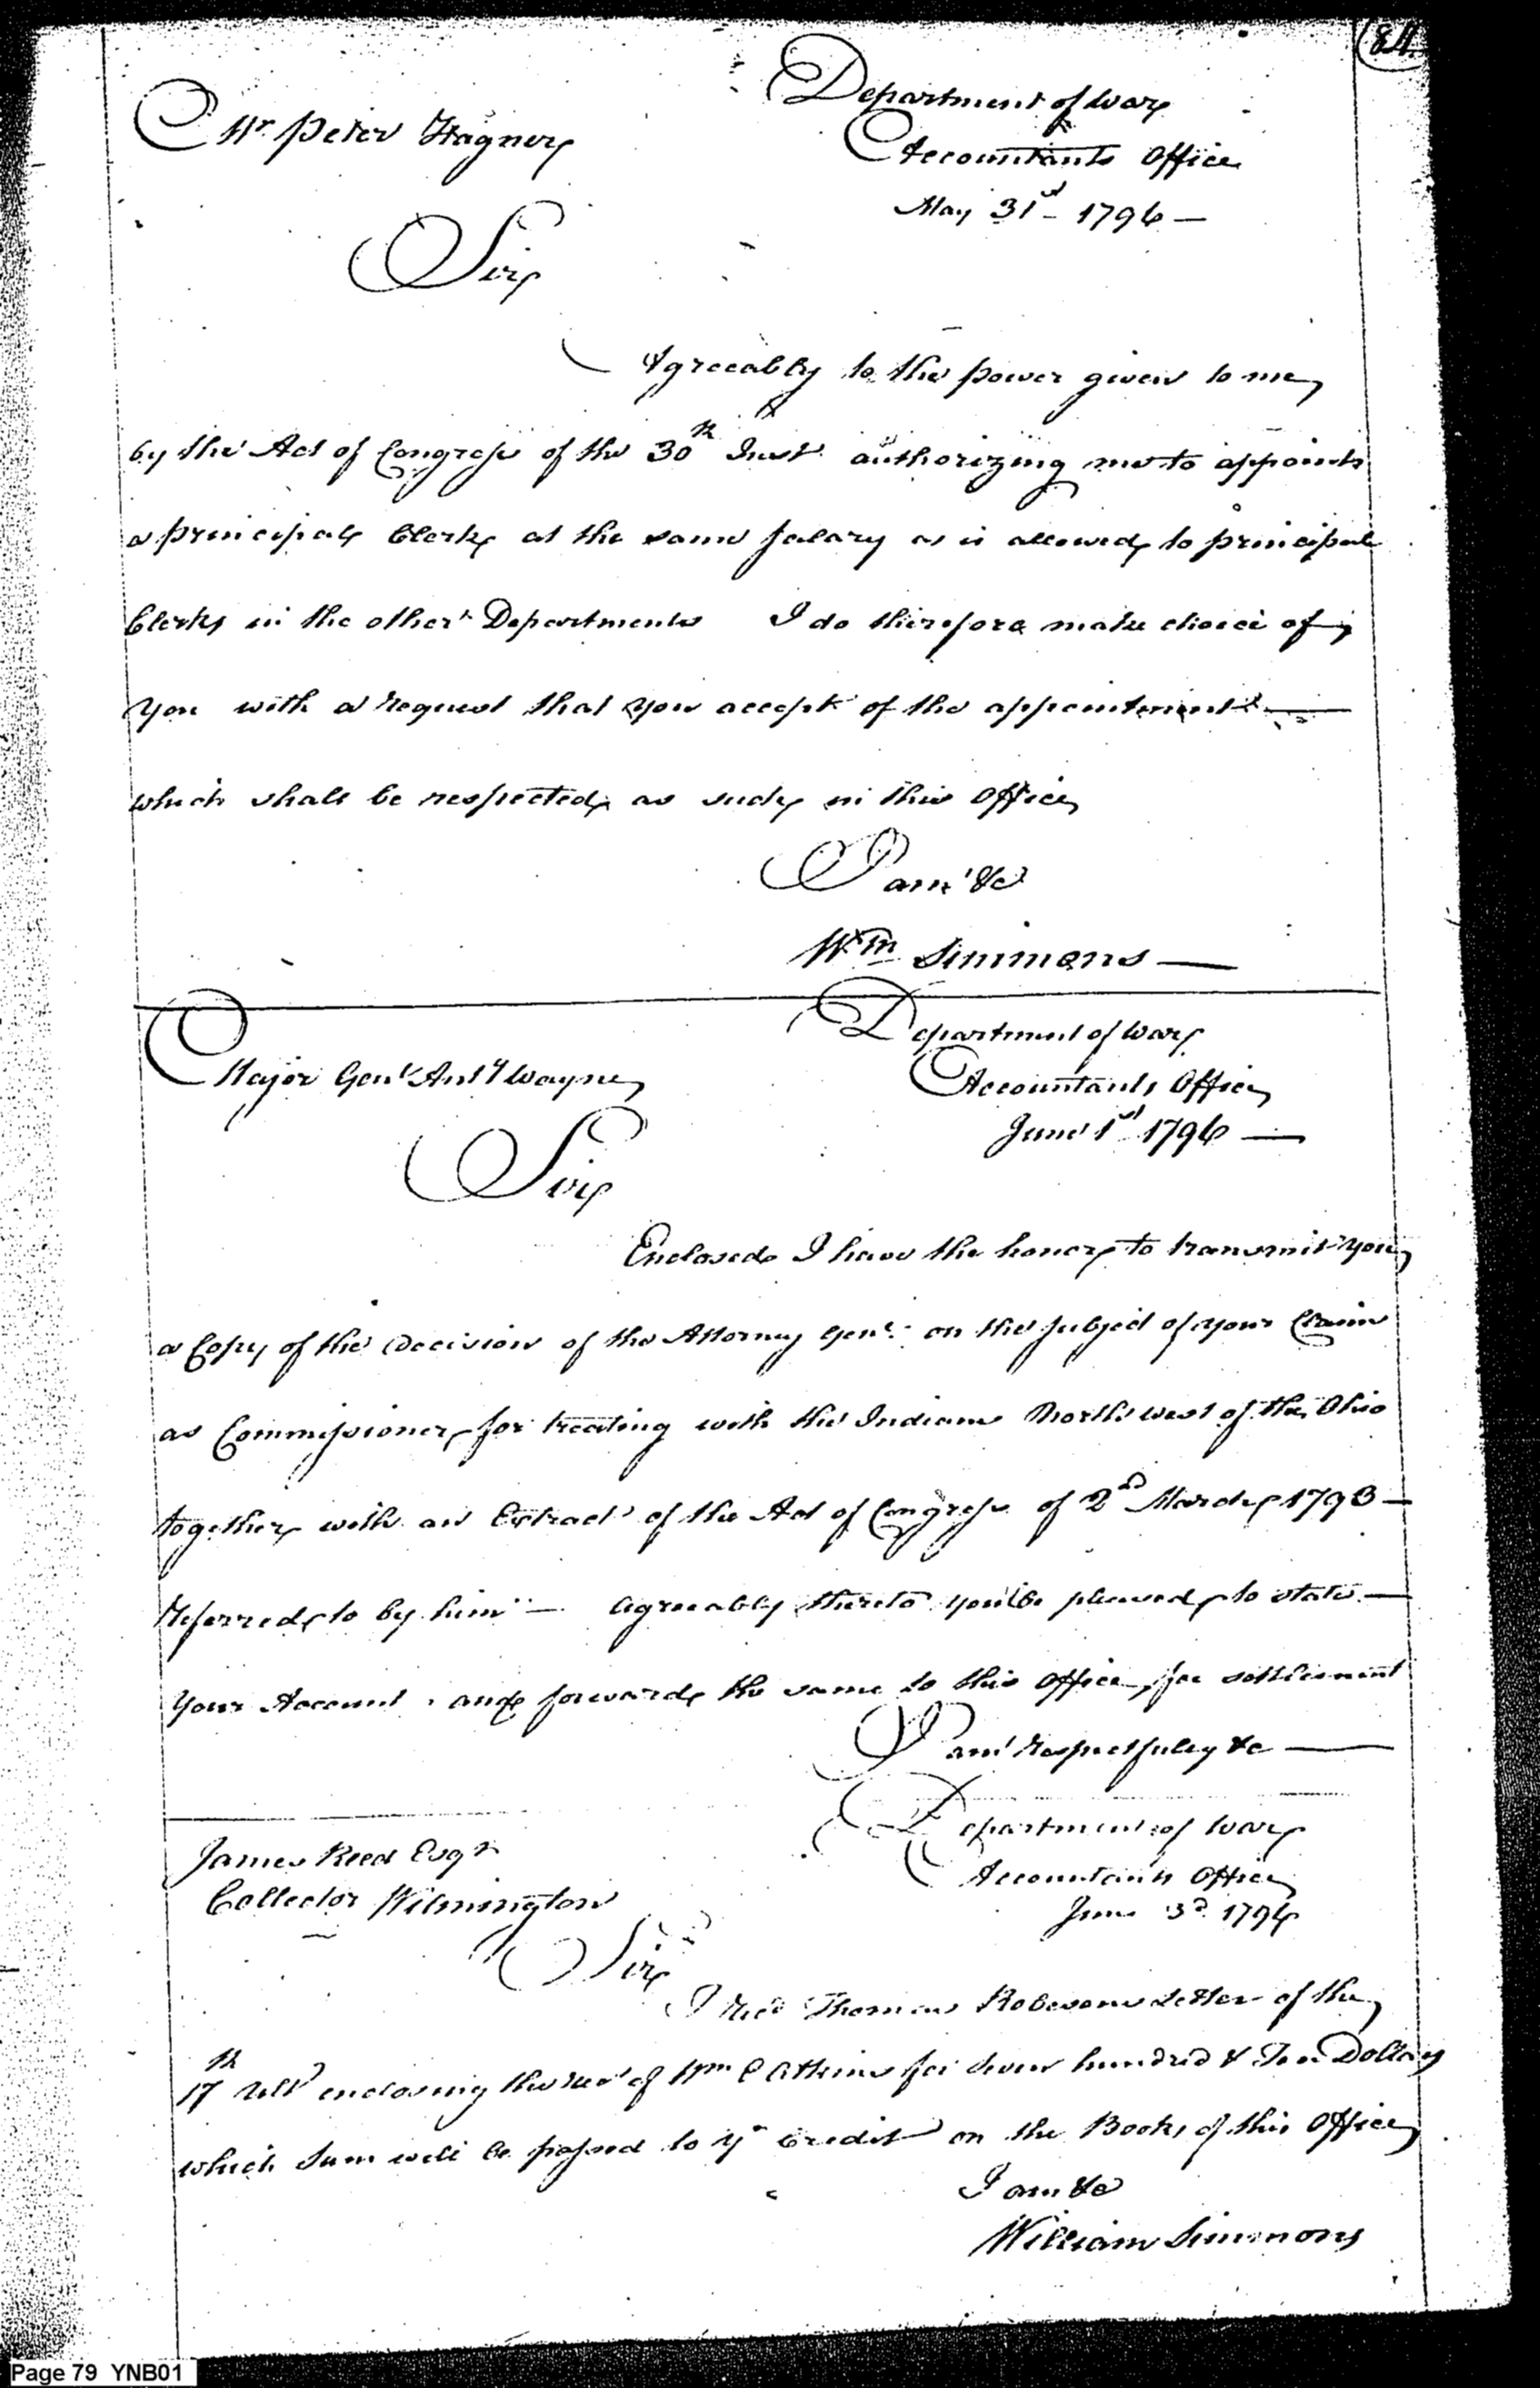 84
Department of War
Mr. Peter Hagner
Accountants Office
May 31st - 1796 —
Sir
Agreeably to the power given to me
by the Act of Congress of the 30th Inst. authorizing me to appoint
a principal Clerk at the same salary as is allowed to principal
Clerks in the other Departments I do therefore make choice of
you with a request that you accept of the appointment —
which shall be respected as such in this Office
I am &c
Wm Simmons —
Department of War
Major Genl Anty Wayne
Accountants Office
June 1st 1796 —
Sir
Enclosed I have the honor to transmit you
a Copy of the decision of the Attorney Genl. on the subject of your Claim
as Commissioner for treating with the Indians North west of the Ohio
together with an Extract of the Act of Congress of 2nd March 1793 —
referred to by him — agreeably thereto you'll be pleased to state —
your Account and forward the same to this Office for settlement
I am respectfully &c —
Department of War
James Reed Esqr
Accountants Office
Collector Wilmington
June 3d 1796
Sir
I recd Thomas Robesons Letter of the
17th Ulto enclosing the rect of Wm C Atkins for seven hundred & Ten Dollars
which Sum will be passed to yr Credit on the Books of this Office
I am &c
William Simmons
Page 79 YNB01